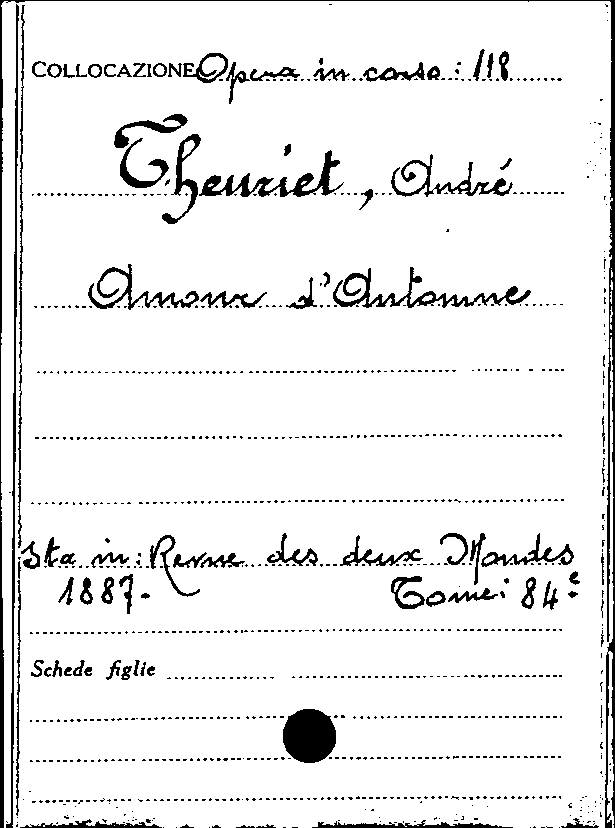 COLLOCAZIONE Opera in corso: 118
Theuriet, André
Amour d'Automne
Sta in: Revue des deux Mondes
1887. Tome: 84e
Schede figlie